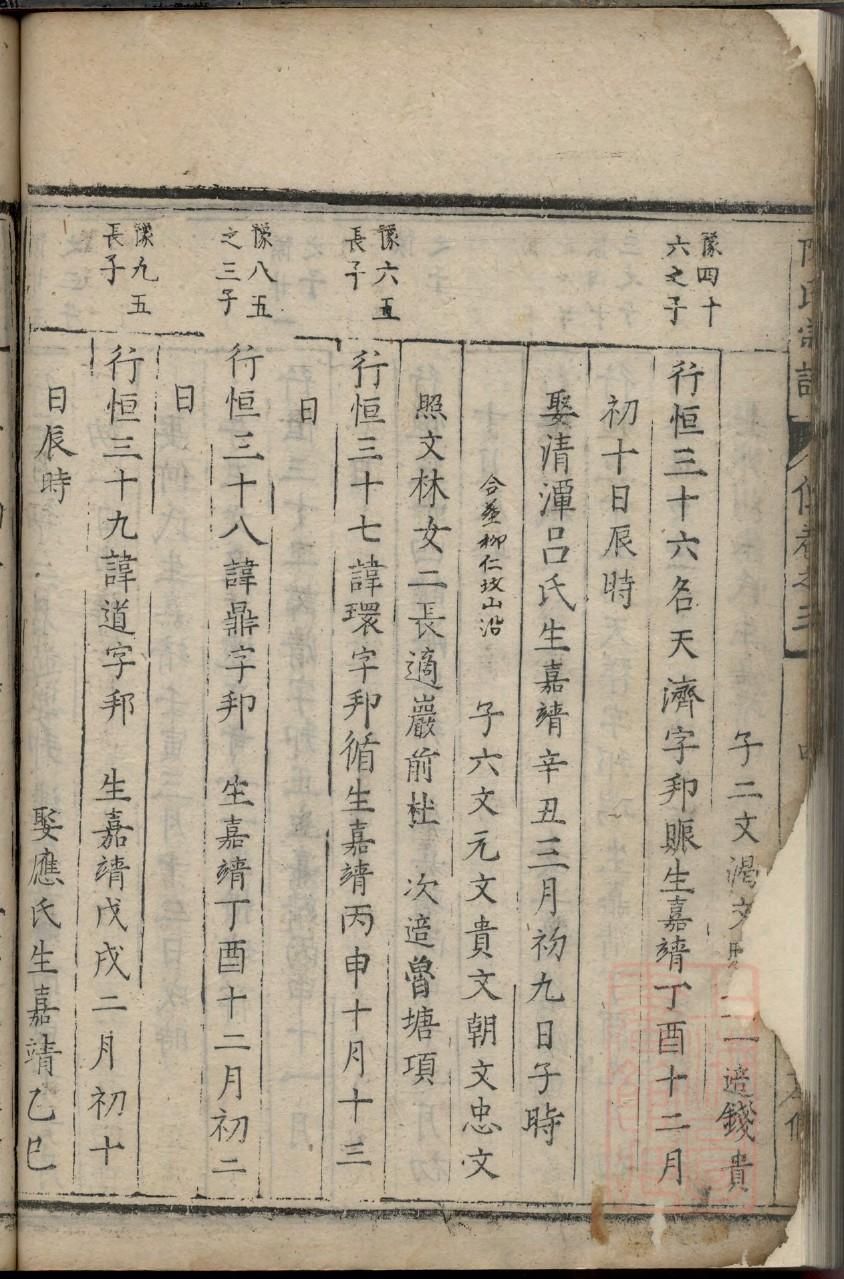 子二文渴文 適錢貴
豫四十
六之子
行恒三十六名天濟字邦賑生嘉靖丁酉十二月
初十日辰時
娶清潭呂氏生嘉靖辛丑三月初九日子時
合塟柳仁坟山沿
子六文元文貴文朝文忠文
照文林女二長適巖前杜 次適曾塘項
豫六五
長子
行恒三十七諱環字邦循生嘉靖丙申十月十三
日
豫八五
之三子
行恒三十八諱鼎字邦 生嘉靖丁酉十二月初二
日
豫九五
長子
行恒三十九諱道字邦 生嘉靖戊戌二月初十
日辰時
娶應氏生嘉靖乙巳